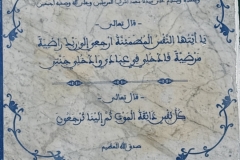 - قال تعالى -
يا أيتها النفس المطمئنة ارجعي إلى ربك راضية
مرضية فادخلي في عبادي وادخلي جنتي
- قال تعالى -
كل نفس ذائقة الموت ثم إلينا ترجعون
صدق الله العظيم